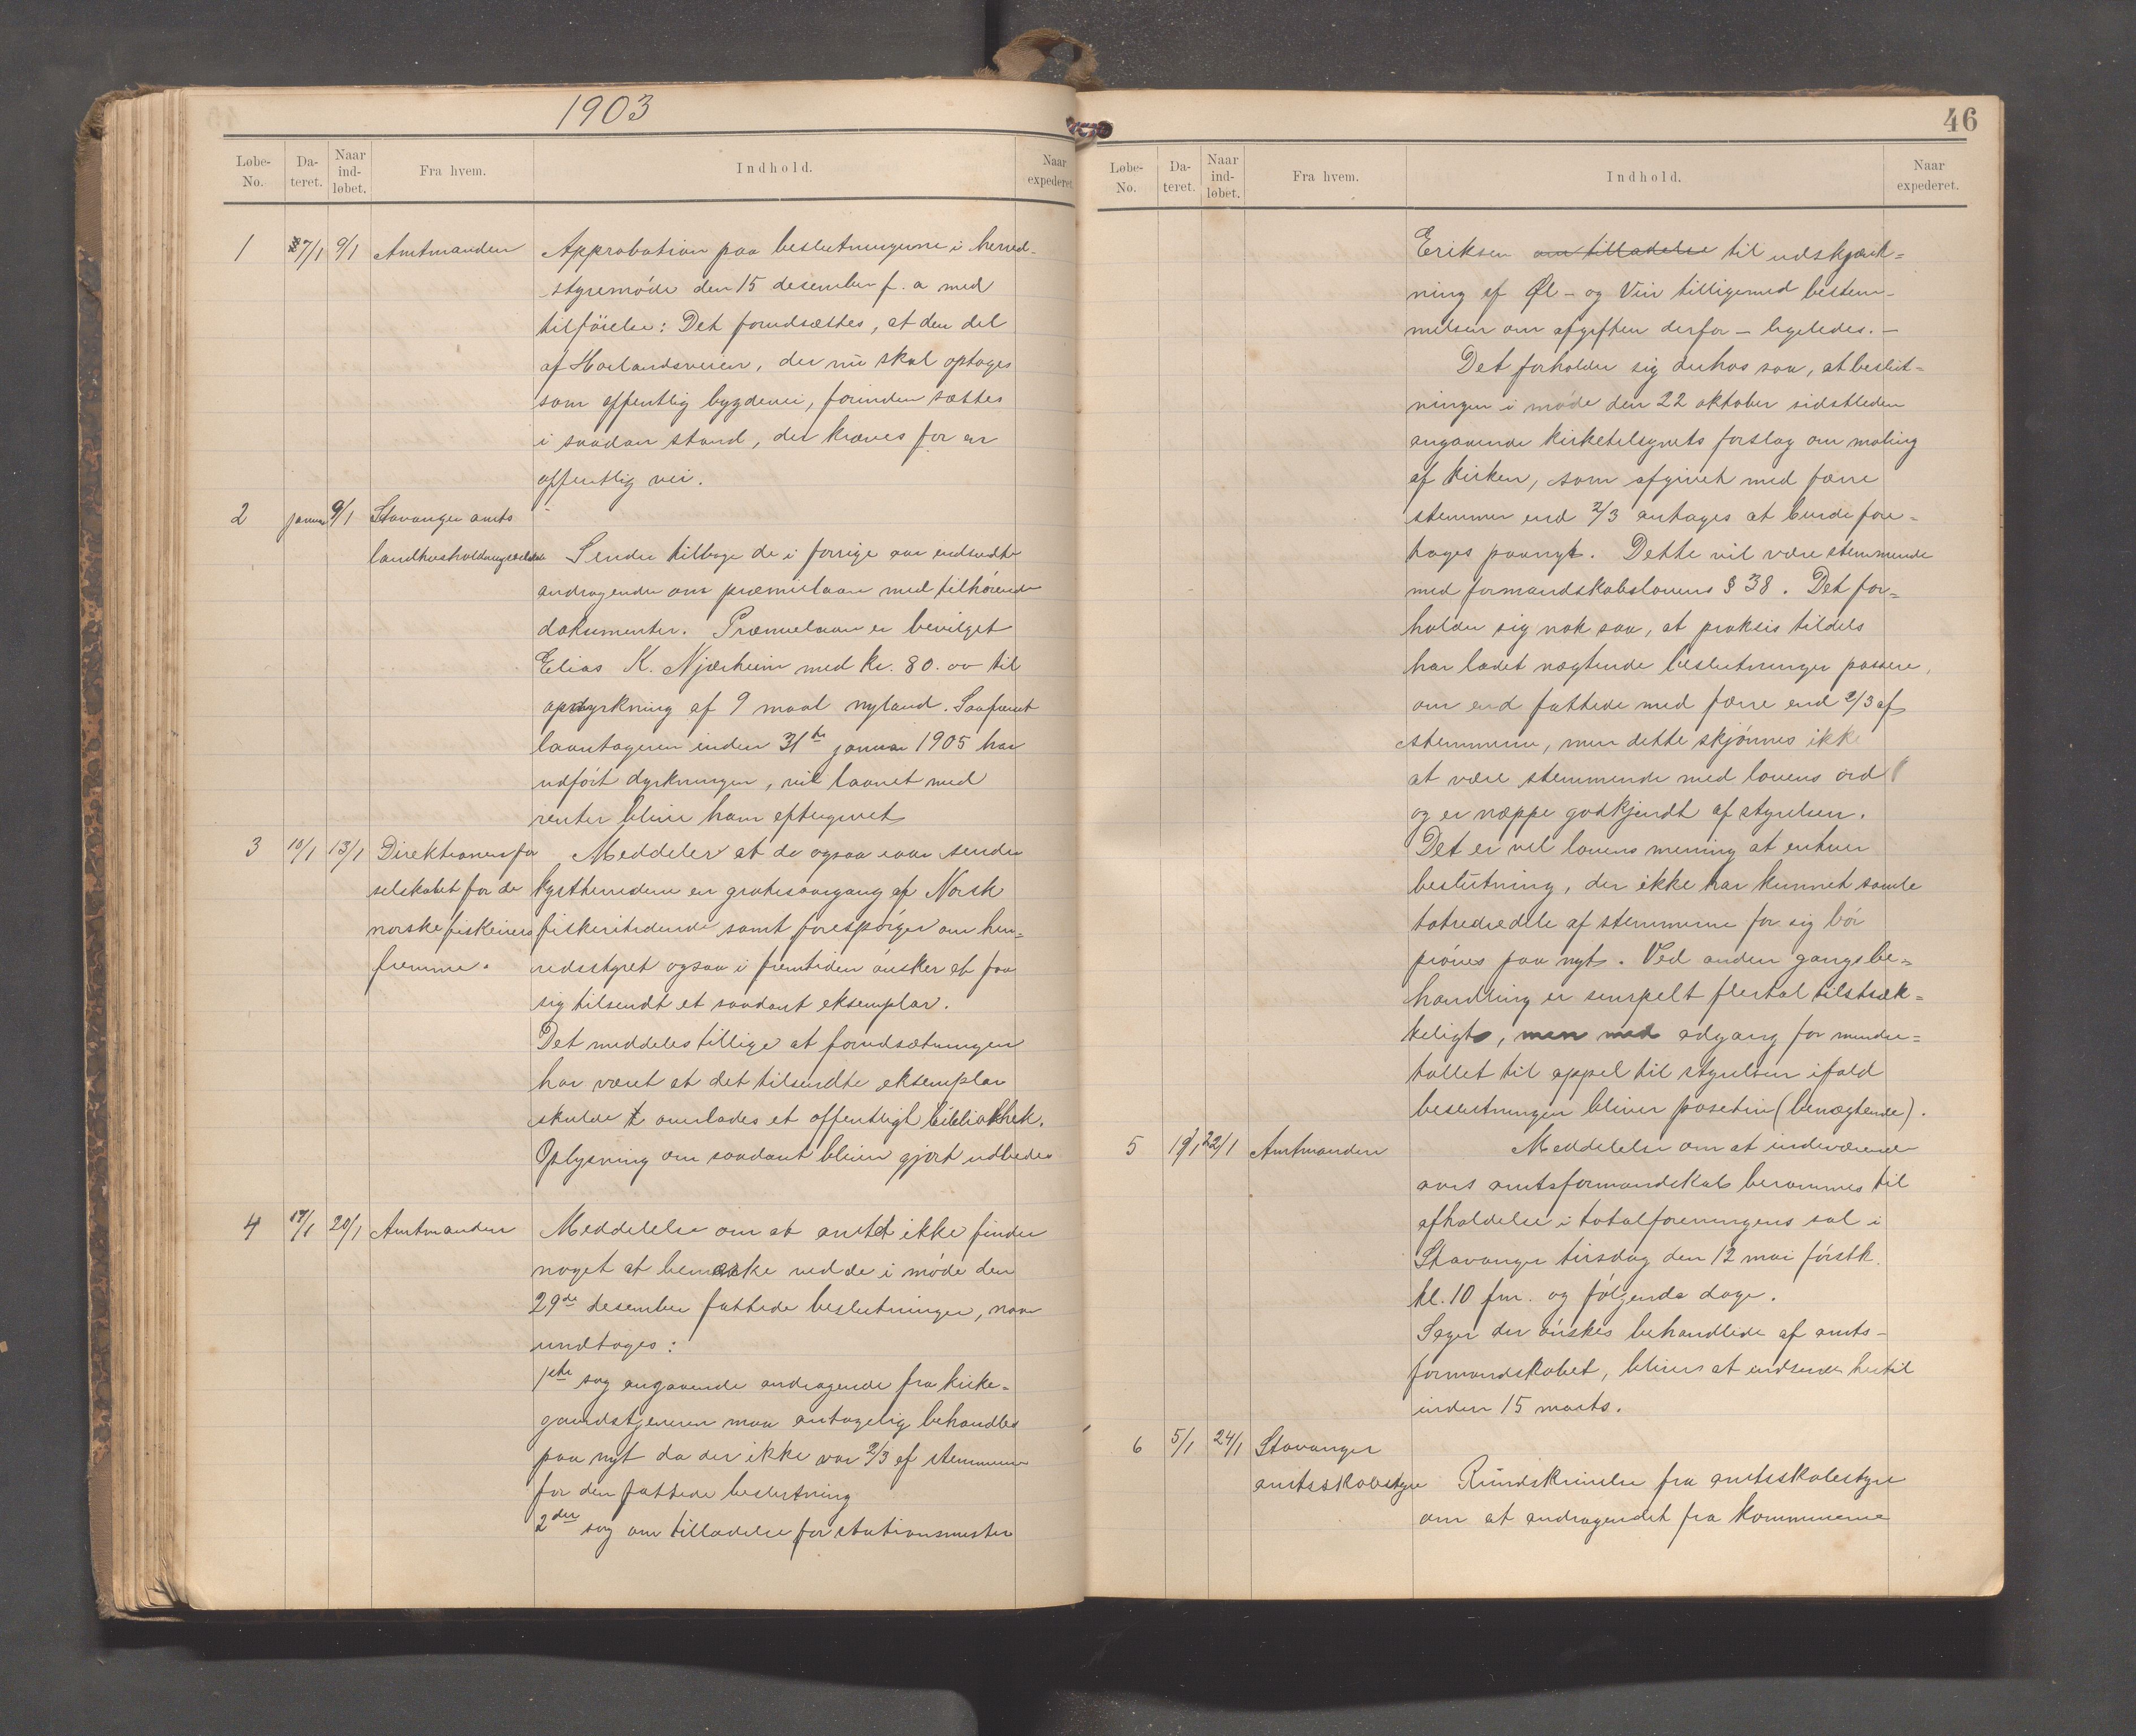 1903
Løbe-No. Da-teret. Naar ind-løbet. Fra hvem. Indhold. Naar expederet.
1 7/1 9/1 Amtmanden Approbation paa beslutningerne i herred-
styremøde den 15 desember f. a med
tilførselse: Det forudsættes, at den del
af Høilandsveien, der nu skal optages
som offentlig bygdevei, forinden sættes
i saadan stand, der kræves for en
offentlig vei.
2 januar 9/1 Stavanger amts
landhusholdningsselskab Sender tilbage de i forrige aar indsendte
andragender om præmielaan med tilhørende
dokumenter. Præmielaan er bevilget
Elias K. Njærheim med kr. 80.00 til
opdyrkning af 9 maal nyland. Saafremt
laantageren inden 31te januar 1905 har
udført dyrkningen, vil laanet med
renter blive ham eftergivet
3 10/1 13/1 Direktionen for Meddeler at de ogsaa iaar sender
selskabet for de kystherrederne en gratisaargang af Norsk
norske fiskeriers fiskeritidende samt forespørger om her-
fremme. redsstyret ogsaa i fremtiden ønsker at faa
sig tilsendt et saadant eksemplar.
Det meddeles tillige at forudsætningen
har været at det tilsendte eksemplar
skulde overlades et offentligt bibliothek.
Oplysning om saadant bliver gjort udbedes
4 17/1 20/1 Amtmanden Meddelelse om at amtet ikke finder
noget at bemærke ved de i møde den
29de desember fattede beslutninger, naar
undtages:
1ste sag angaaende andragende fra kirke-
gaardstjeneren maa antagelig behandles
paa nyt da der ikke var 2/3 af stemmerne
for den fattede beslutning
2den sag om tilladelse for stationsmester
46
Løbe-No. Da-teret. Naar ind-løbet. Fra hvem. Indhold. Naar expederet.
Eriksen om tilladelse til udskjænk-
ning af Øl- og Vin tilligemed bestem-
melsen om afgiften derfor - ligeledes. -
Det forholder sig derhos saa, at beslut-
ningen i møde den 22 oktober sidstleden
angaaende kirketilsynets forslag om maling
af kirken, som afgivet med færre
stemmer end 2/3 antages at burde fore-
tages paanyt. Dette vil være stemmende
med formandskabslovens § 38. Det for-
holder sig nok saa, at praksis tildels
har ladet nægtende beslutninger passere,
om end fattede med færre end 2/3 af
stemmerne, men dette skjønnes ikke
at være stemmende med lovens ord
og er næppe godkjendt af styrelsen.
Det er vel lovens mening at enhver
beslutning, der ikke har kunnet samle
totrediedele af stemmerne for sig bør
prøves paa nyt. Ved anden gangs be-
handling er simpelt flertal tilstræk-
keligt, men med adgang for mindre-
tallet til appel til styrelsen ifald
beslutningen bliver posetiv (benægtende).
5 19/1 22/1 Amtmanden Meddelelse om at indeværende
aars amtsformandskab berammes til
afholdelse i totalforeningens sal i
Stavanger tirsdag den 12 mai førstk.
kl. 10 fm. og følgende dage.
Sager der ønskes behandlede af amts-
formandskabet, bliver at indsende hertil
inden 15 marts.
6 5/1 24/1 Stavanger
amtsskolestyre Rundskrivelse fra amtsskolestyre
om at andragendet fra kommunerne